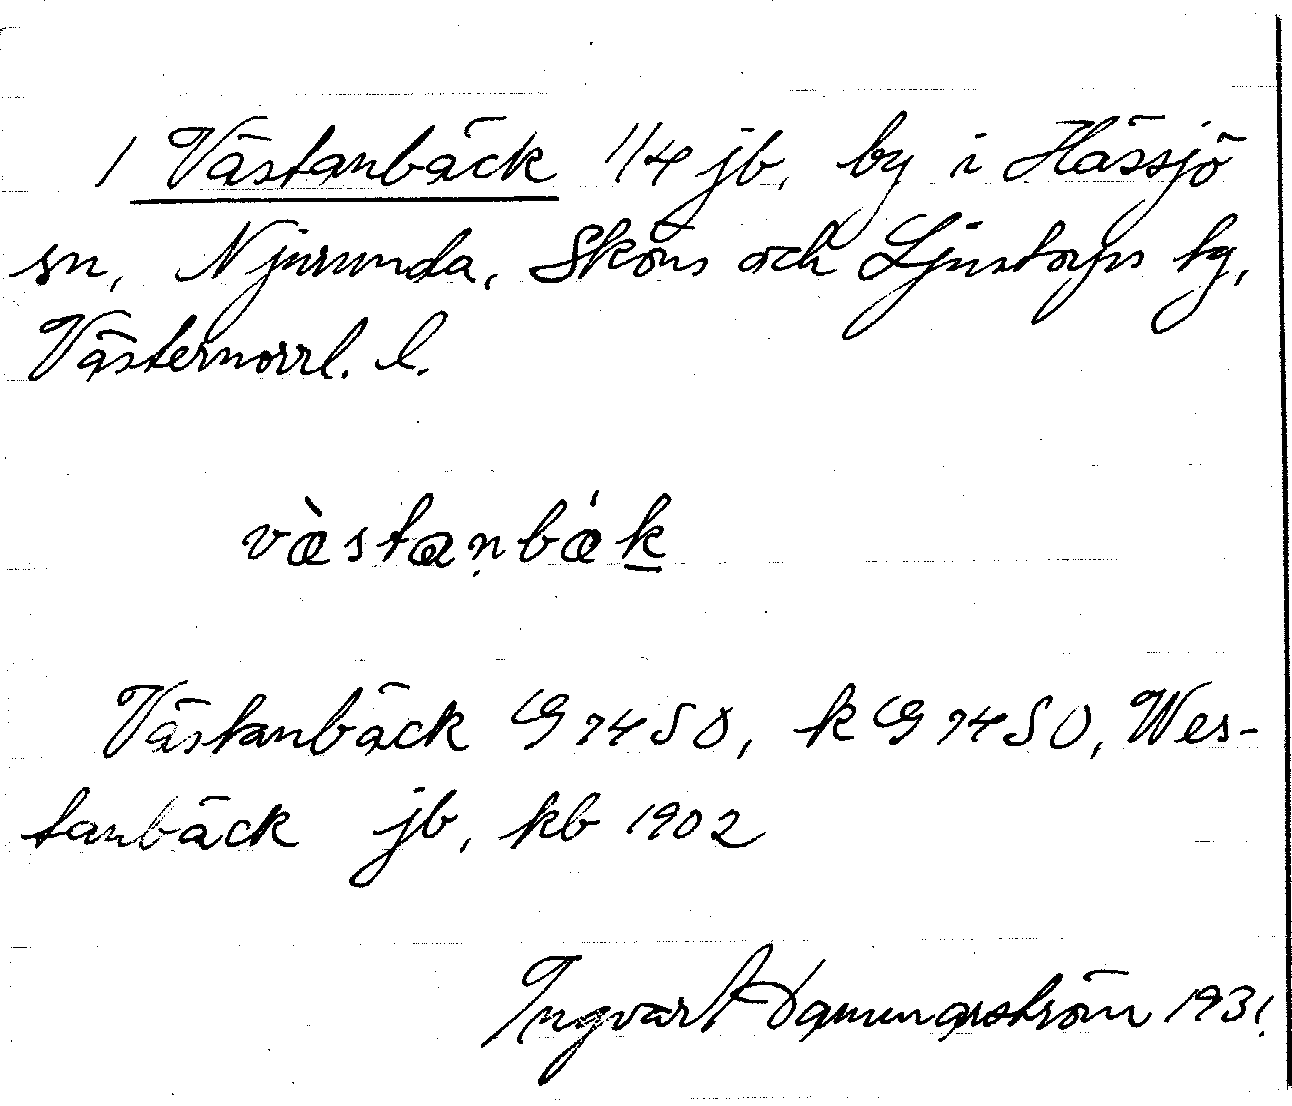 1 Västanbäck 1/4 jb, by i Hässjö
sn, Njurunda, Sköns och Ljustorps tg,
Västernorrl. l.
vàstanbák
Västanbäck G 74 SO, k G 74 SO, Wes-
tanbäck jb, kb 1902
Ingvar Hammarström 1931.